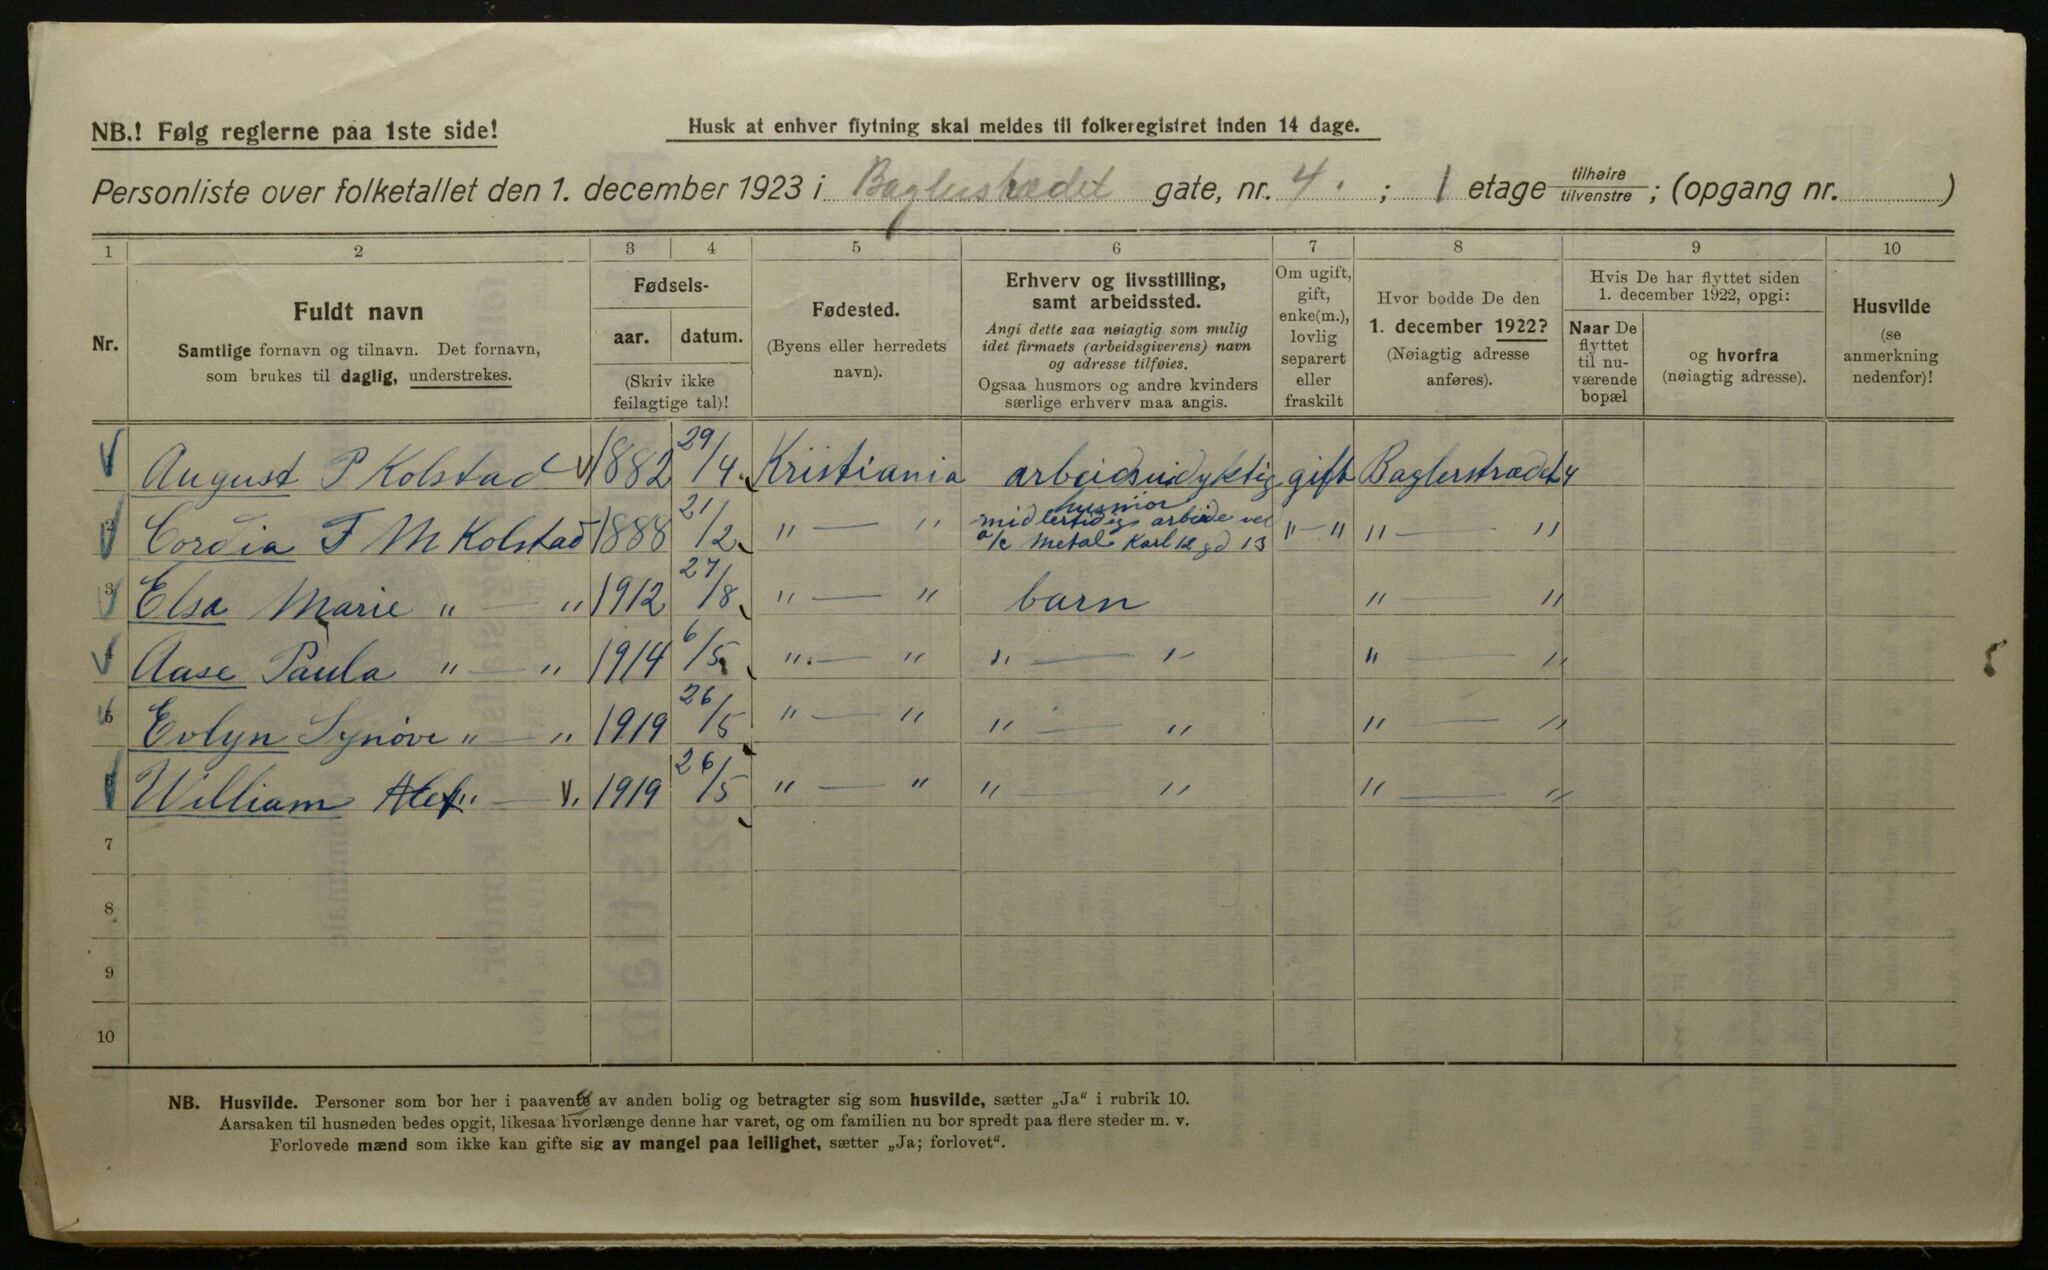 NB.! Følg reglerne paa 1ste side!
Husk at enhver flytning skal meldes til folkeregistret inden 14 dage.
Personliste over folketallet den 1. december 1923 i Baglerstrædet gate, nr. 4. ; 1 etage tilhøire/tilvenstre ; (opgang nr. )
1 2 3 4 5 6 7 8 9 10
Nr.
Fuldt navn
Samtlige fornavn og tilnavn. Det fornavn,
som brukes til daglig, understrekes.
Fødsels-
aar. datum.
(Skriv ikke
feilagtige tal)!
Fødested.
(Byens eller herredets
navn).
Erhverv og livsstilling,
samt arbeidssted.
Angi dette saa nøiagtig som mulig
idet firmaets (arbeidsgiverens) navn
og adresse tilføies.
Ogsaa husmors og andre kvinders
særlige erhverv maa angis.
Om ugift,
gift,
enke(m.),
lovlig
separert
eller
fraskilt
Hvor bodde De den
1. december 1922?
(Nøiagtig adresse
anføres).
Hvis De har flyttet siden
1. december 1922, opgi:
Naar De
flyttet
til nu-
værende
bopæl
og hvorfra
(nøiagtig adresse).
Husvilde
(se
anmerkning
nedenfor)!
August P Kolstad 1882 29/4 Kristiania arbeidsudyktig gift Baglerstrædet 4
husmor
2 Cordia F M Kolstad 1888 21/2 " — " midlertidig arbeide ved " — " " — "
a/c Metal Karl 12 gd 13
3 Elsa Marie " — " 1912 27/8 " — " barn " — "
4 Aase Paula " — " 1914 6/5 " — " " — " " — "
5 Evlyn Synøve " — " 1919 26/5 " — " " — " " — "
6 William " — " 1919 26/5 " — " " — " " — "
7
8
9
10
NB. Husvilde. Personer som bor her i paavente av anden bolig og betragter sig som husvilde, sætter „Ja“ i rubrik 10.
Aarsaken til husnøden bedes opgit, likesaa hvorlænge denne har varet, og om familien nu bor spredt paa flere steder m. v.
Forlovede mænd som ikke kan gifte sig av mangel paa leilighet, sætter „Ja; forlovet“.